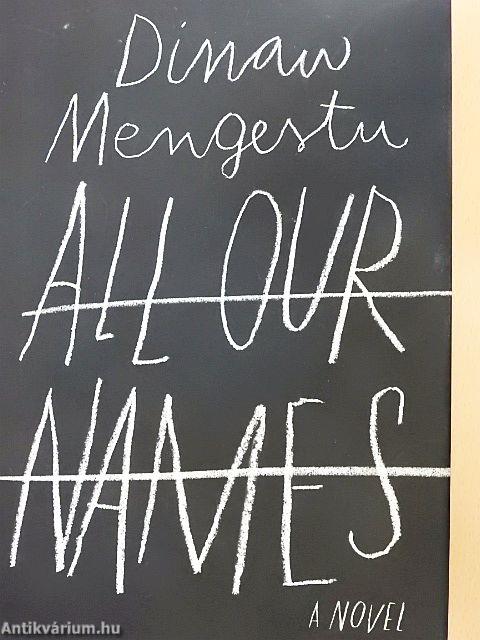 Dinaw
Mengestu
ALL OUR
NAMES
A NOVEL
Antikvárium.hu